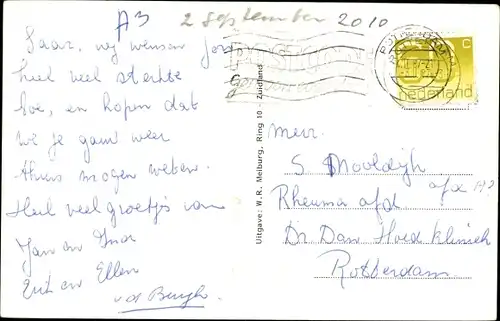 A3
2 September 2010
Saar, wij wensen jou
heel veel sterkte
toe, en hopen dat
we je gauw weer
thuis mogen weten.
Heel veel groetjes van
Jan en Ina
Erik en Ellen
v.d. Bergh.
Uitgave: W. R. Melburg, Ring 10 - Zuidland
POSTCODE
ROTTERDAM
c
nederland
Mevr.
S Mooldijk
Rheuma afd
afd A3
Dr Dan Hoed kliniek
Rotterdam